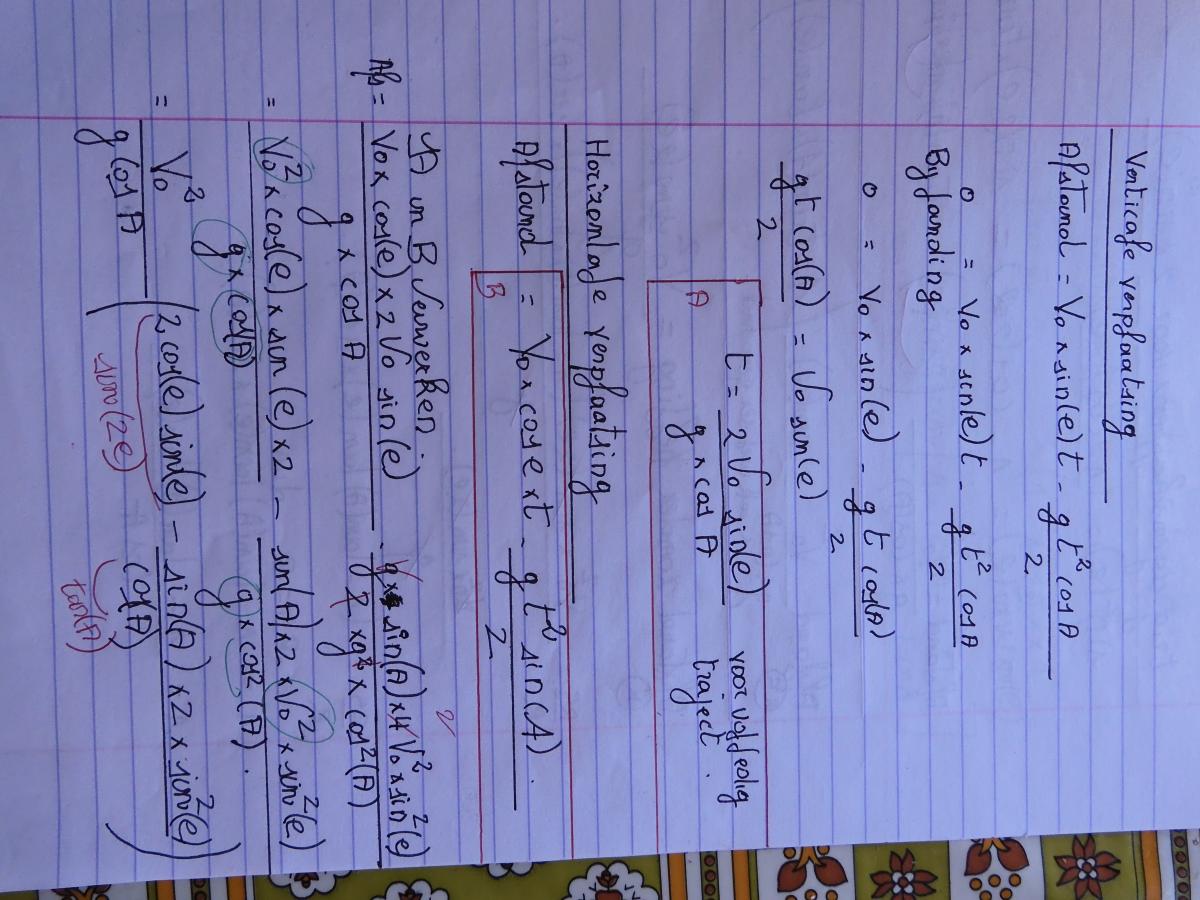 Verticale verplaatsing
Afstand = V₀ × sin(e)t - gt² cos A / 2
0 = V₀ × sin(e)t - gt² cos A / 2
By landing
0 = V₀ × sin(e) - gt cos(A) / 2
gt cos(A) / 2 = V₀ sin(e)
t = 2 V₀ sin(e) / g × cos A voor volledig traject.
A
Horizontale verplaatsing
Afstand = V₀ × cos e × t - gt² sin(A). / 2
B
A in B verwerken
Afs = V₀ × cos(e) × 2 V₀ sin(e) / g × cos A - g × sin(A) × 4 V₀² × sin²(e) / 2 × g² × cos²(A)
2
= V₀² × cos(e) × sin(e) × 2 / g × cos(A) - sin(A) × 2 × V₀² × sin²(e) / g × cos²(A).
= V₀² / g cos A (2 cos(e) sin(e) - sin(A) × 2 × sin²(e) / cos(A))
sin(2e) tan(A)